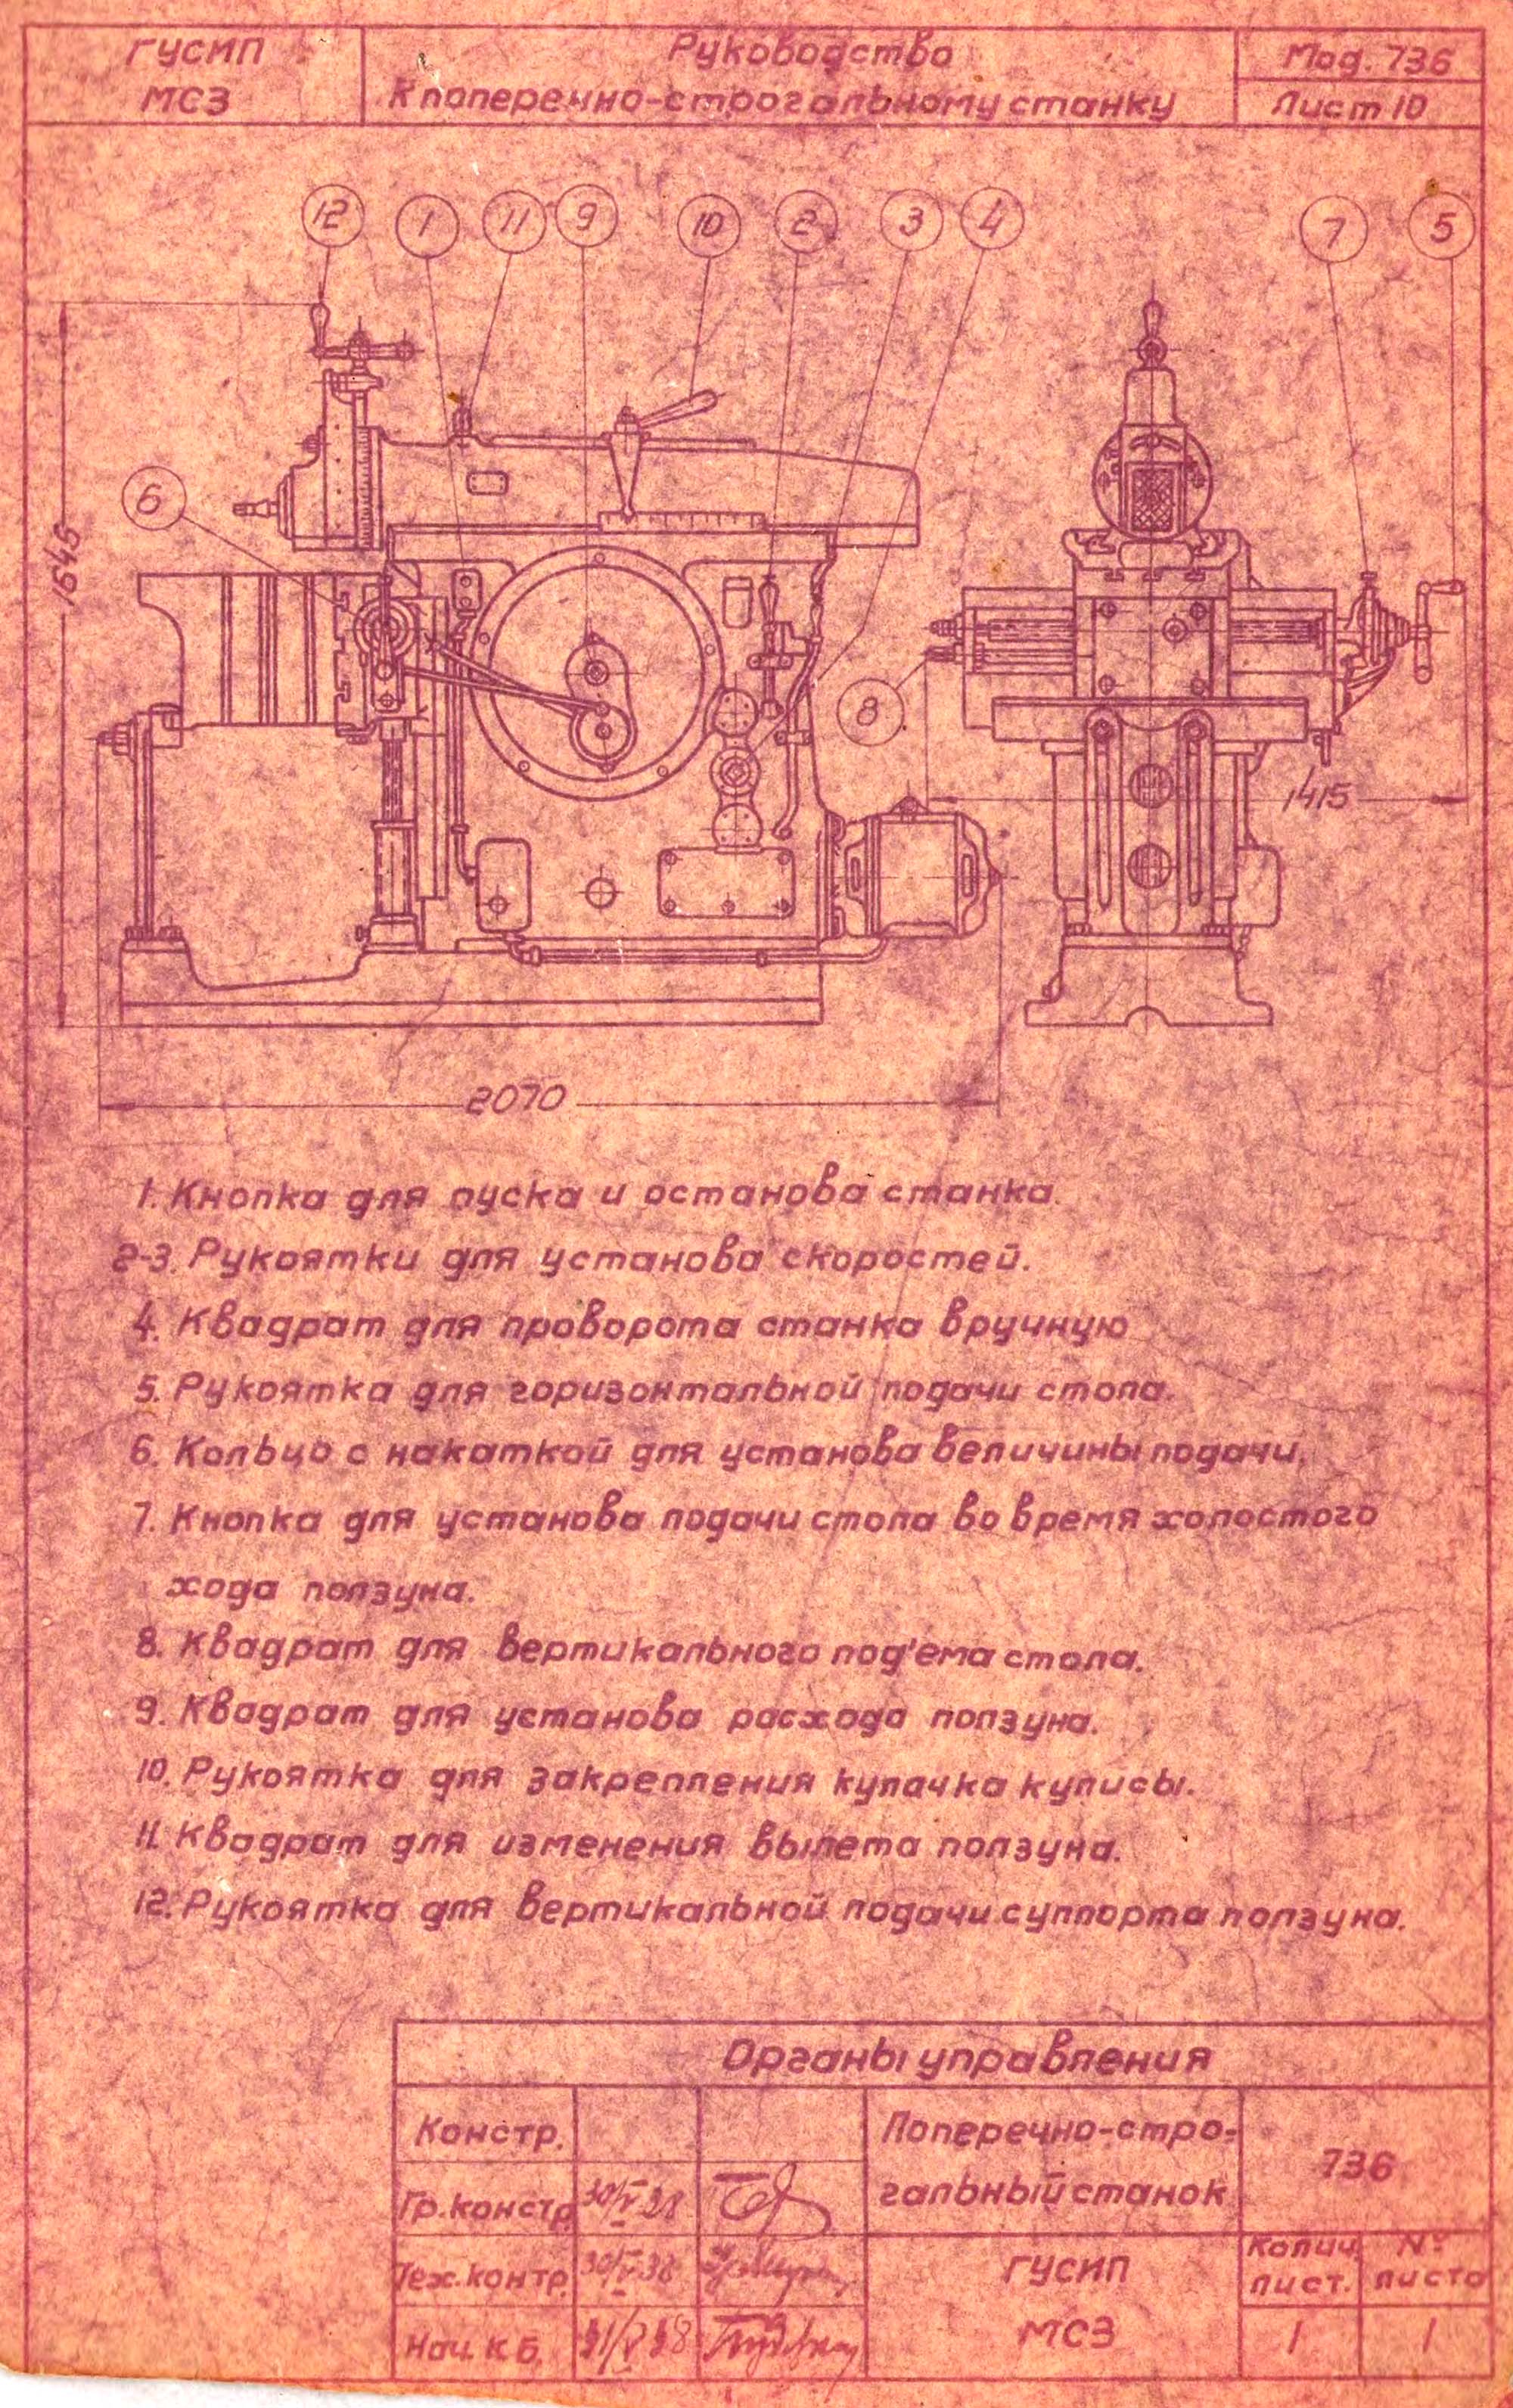 ГУСИП
МСЗ
Руководство
К поперечно-строгальному станку
Мод. 736
Лист 10
12 1 11 9 10 2 3 4 7 5
6
8
1545
1415
2070
1. Кнопка для пуска и останова станка.
2-3. Рукоятки для установа скоростей.
4. Квадрат для проворота станка вручную
5. Рукоятка для горизонтальной подачи стола.
6. Кольцо с накаткой для установа величины подачи.
7. Кнопка для установа подачи стола во время холостого
хода ползуна.
8. Квадрат для вертикального под'ема стола.
9. Квадрат для установа расхода ползуна.
10. Рукоятка для закрепления кулачка кулисы.
11. Квадрат для изменения вылета ползуна.
12. Рукоятка для вертикальной подачи суппорта ползуна.
Органы управления
Констр.
Гр. констр.
Тех. контр.
Нач. К Б.
30/V 38
30/V 38
31/V 38
Поперечно-стро-
гальный станок
736
ГУСИП
МСЗ
Колич. лист.
№ листа
1
1